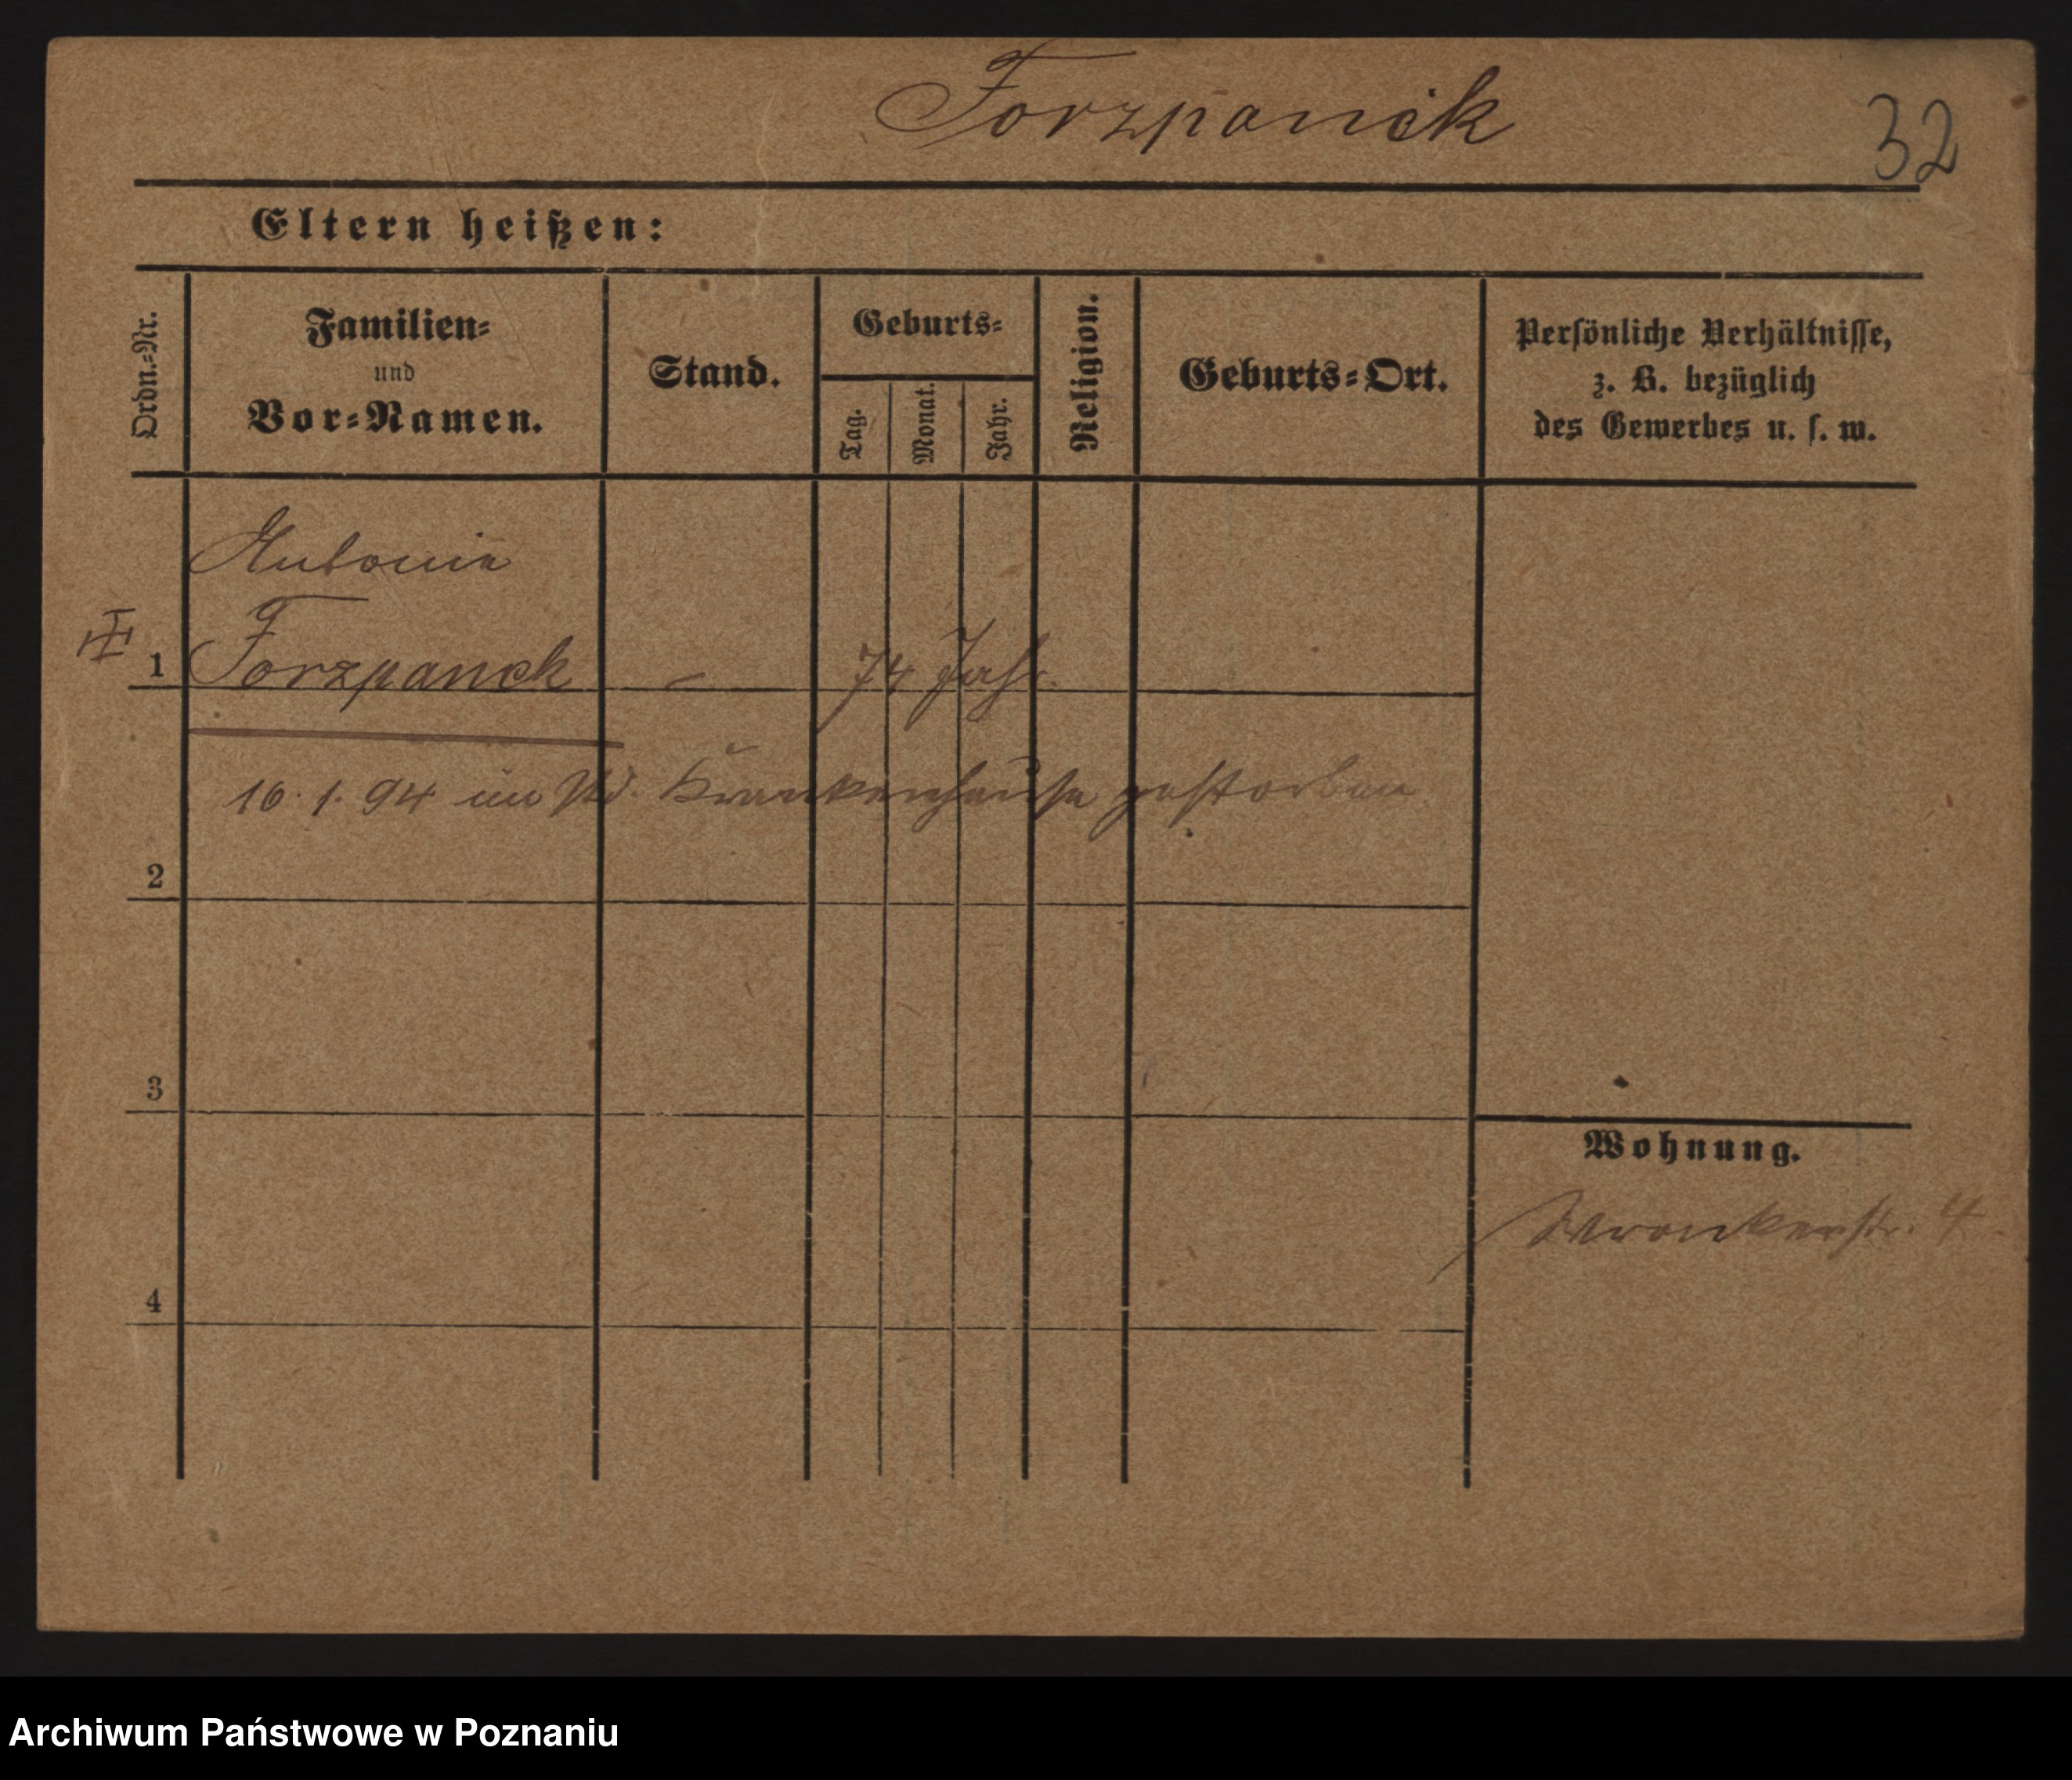 Forzpanek
32
Eltern heißen:
Ordn.=Nr.
Familien=
und
Vor=Namen.
Stand.
Geburts=
Tag.
Monat.
Jahr.
Religion.
Geburts=Ort.
Persönliche Verhältnisse,
z. B. bezüglich
des Gewerbes u. s. w.
Antonie
1 Forzpanek – 74 Jahr.
16. 1. 94 im Krankenhause gestorben
2
3
Wohnung.
Wronkerstr. 4
4
Archiwum Państwowe w Poznaniu